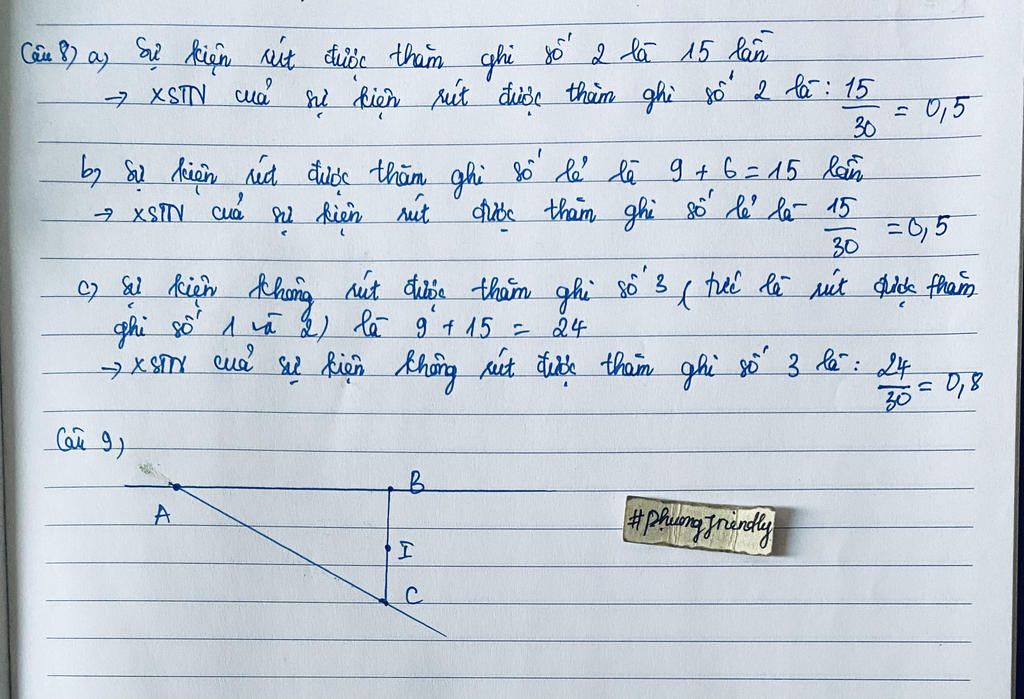 Câu 8) a) Sự kiện rút được thăm ghi số 2 là 15 lần
→ XSTN của sự kiện rút được thăm ghi số 2 là: 15/30 = 0,5
b) Sự kiện rút được thăm ghi số lẻ là 9 + 6 = 15 lần
→ XSTN của sự kiện rút được thăm ghi số lẻ là 15/30 = 0,5
c) Sự kiện không rút được thăm ghi số 3 ( tức là rút được thăm
ghi số 1 và 2) là 9 + 15 = 24
→ XSTN của sự kiện không rút được thăm ghi số 3 là: 24/30 = 0,8
Câu 9)
B
A
I
C
#phuongfriendly